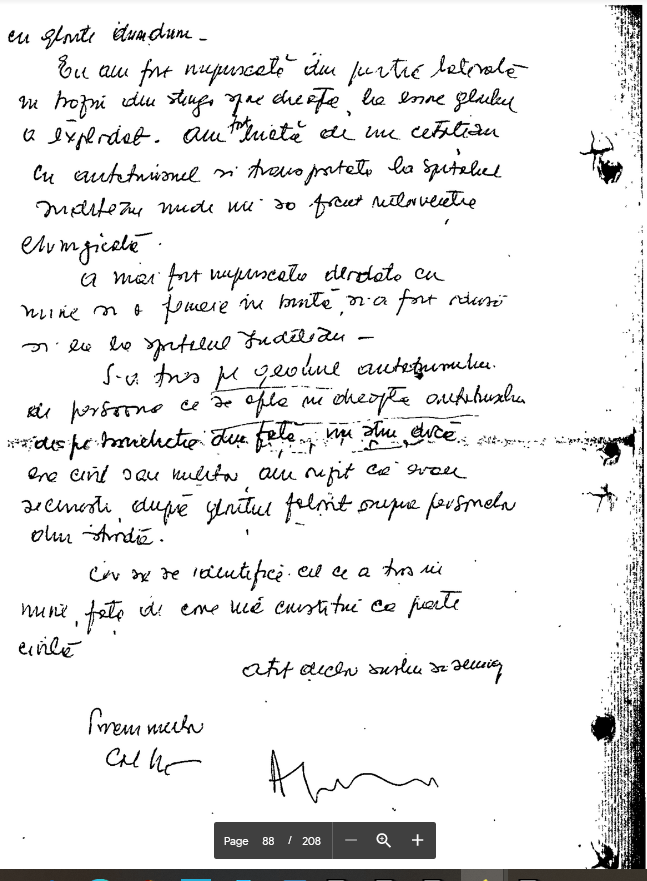 cu gloante dumdum -
Eu am fost impuscată din partea laterală
in  din stanga spre dreapta, la mine glontul
a explodat. am fost luată de un cetatean
cu autoturismul si transportata la spitalul
Judetean unde mi so facut interventie
chirurgicală.
A mai fost impuscata deodata cu
mine si o femeie in burtă, si a fost adusă
si ea la spitalul Judetean -
S-a tras pe geamul autoturismului
de persoana ce se afla in dreapta autoturismului
 pe bancheta din fată, nu stiu dacă
era civil sau militar, am  că erau
securisti, după  folosit asupra personelor
din stradă.
Cer sa se identifice cel ce a tras in
mine, fată de care mă constitui ca parte
civilă
Atit declar sustin si semnez


Page 88 / 208